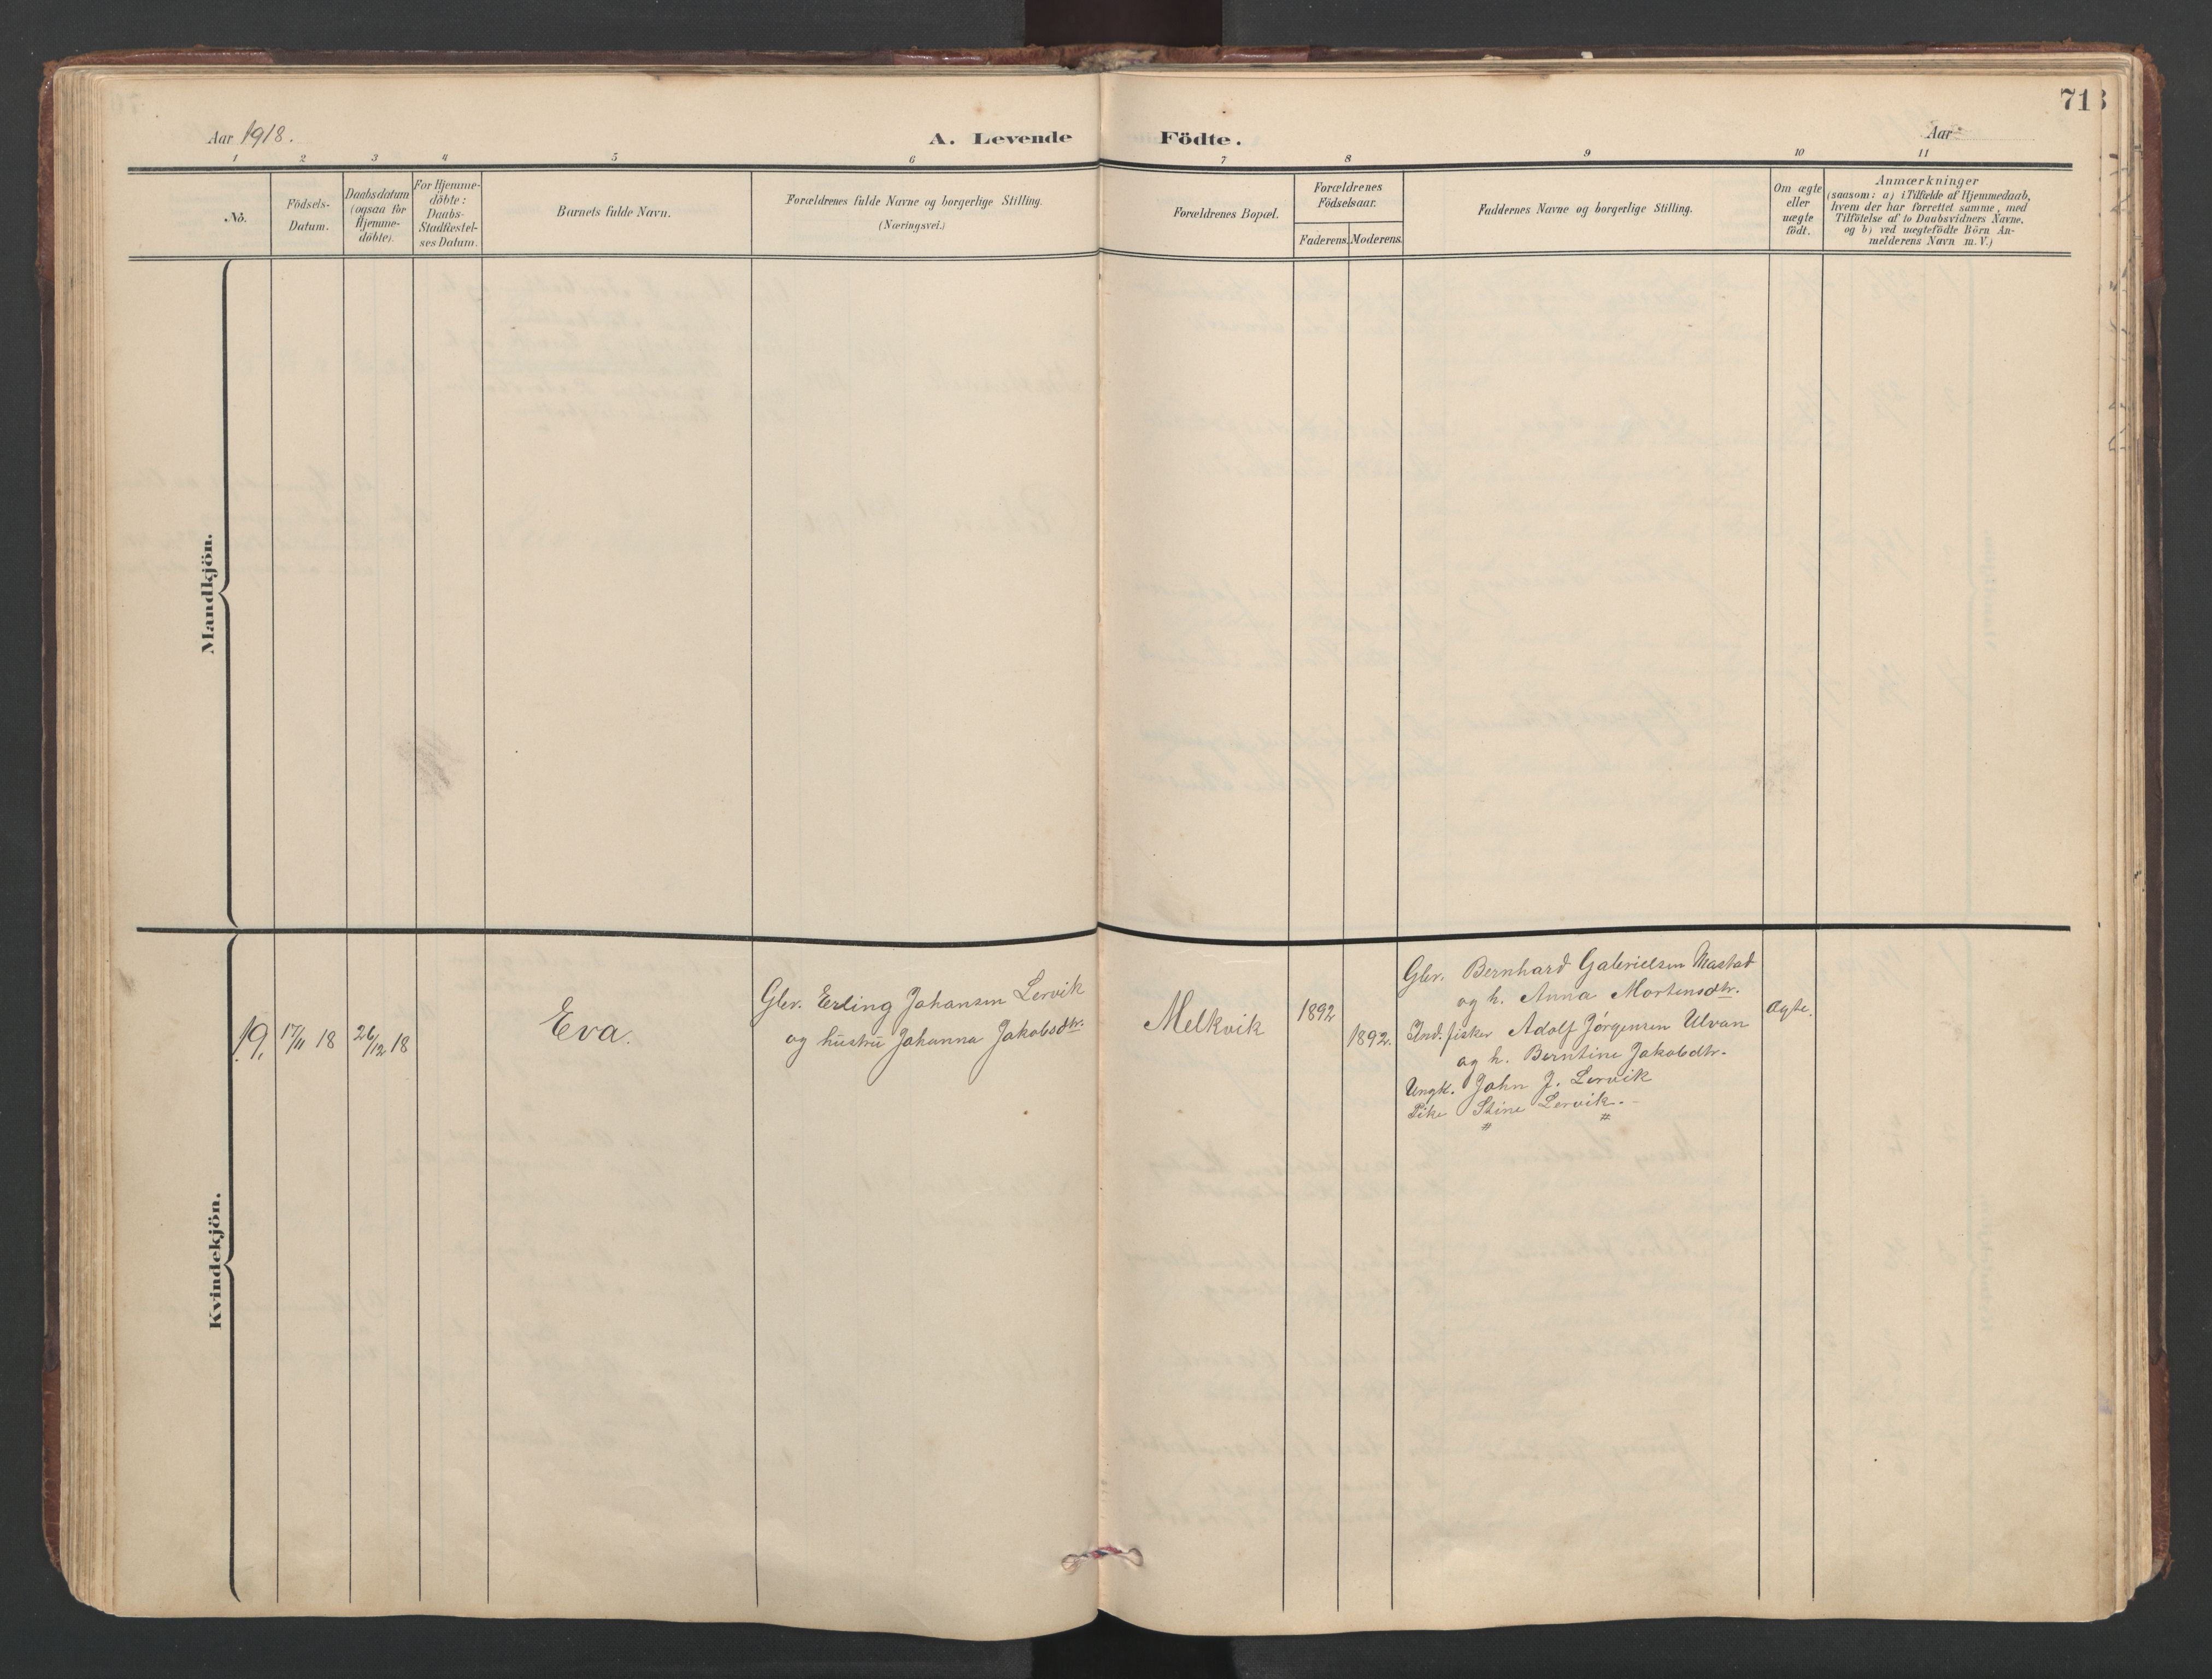 71
Aar 1918.
A. Levende Födte.
Aar
1 2 3 4 5 6 7 8 9 10 11
No.
Födsels-
Datum.
Daabsdatum
(ogsaa for
Hjemme-
döbte).
For Hjemme-
döbte:
Daabs-
Stadfæstel-
ses Datum.
Barnets fulde Navn.
Forældrenes fulde Navne og borgerlige Stilling.
(Næringsvei.)
Forældrenes Bopæl.
Forældrenes
Födselsaar.
Faderens. Moderens.
Faddernes Navne og borgerlige Stilling.
Om ægte
eller
uægte
födt.
Anmærkninger
(saasom: a) i Tilfælde af Hjemmedaab,
hvem der har forrettet samme, med
Tilföielse af to Daabsvidners Navne,
og b) ved uægtefödte Börn An-
melderens Navn m. V.)
Mandkjön.
Kvindekjön.
19. 17/11 18 26/12 18
Eva.
Gbr. Erling Johansen Lervik
og hustru Johanna Jakobsdtr.
Melkvik
1892
1892.
Gbr. Bernhard Gabrielsen Mastad
og h. Anna Mortensdtr.
Ind. fisker Adolf Jørgensen Ulvan
og h. Berntine Jakobdtr.
Ungk. John J. Lervik
Pike Stine Lervik.
Ægte.